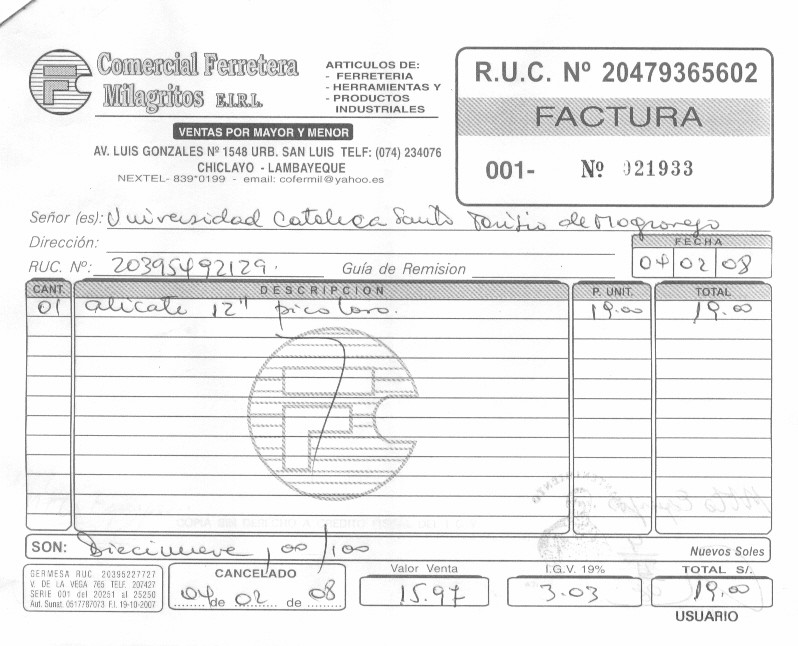 Comercial Ferretera
Milagritos E.I.R.L.
ARTICULOS DE:
- FERRETERIA
- HERRAMIENTAS Y
- PRODUCTOS
INDUSTRIALES
VENTAS POR MAYOR Y MENOR
AV. LUIS GONZALES Nº 1548 URB. SAN LUIS TELF: (074) 234076
CHICLAYO - LAMBAYEQUE
NEXTEL- 839*0199 - email: cofermil@yahoo.es
R.U.C. Nº 20479365602
FACTURA
001- Nº 021933
Señor (es): Universidad Catolica Santo Toribio de Mogrovejo
Dirección:
RUC. Nº: 20395492129. Guía de Remision
FECHA
04 02 08
CANT. DESCRIPCION P. UNIT. TOTAL
01 alicate 12" pico loro. 19.00 19.00
SON: Diecinueve ,00/100 Nuevos Soles
SERMESA RUC 20395227727
V. DE LA VEGA 765 TELF. 207427
SERIE 001 del 20251 al 25250
Aut. Sunat 0517787073 F.I. 19-10-2007
CANCELADO
04 de 02 de 08
Valor Venta
15.97
I.G.V. 19%
3.03
TOTAL S/.
19.00
USUARIO